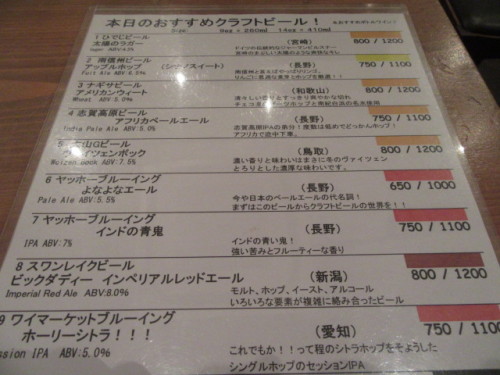 本日のおすすめクラフトビール!
9oz=260ml 14oz=410ml
1 ひでじビール (宮崎) 800 / 1200
太陽のラガー
2 南信州ビール (長野) 750 / 1100
アップルホップ (シードル/スイート)
Fruit Ale ABV:
3 ナギサビール (和歌山) 800 / 1200
アメリカンウィート
Wheat ABV:5.0%
4 志賀高原ビール (長野) 750 / 1100
アフリカペールエール
India Pale Ale ABV:5.0%
アフリカで途中下車。
山Gビール (鳥取) 800 / 1200
ヴァイツェンボック
濃い香りと味わいはまさに冬のヴァイツェン
Weizen Bock ABV:7.5%
とろりとした濃厚な味わいです。
6 ヤッホーブルーイング (長野) 650 / 1000
よなよなエール
今や日本のペールエールの代名詞!
Pale Ale ABV:5.5%
まずはこのビールからクラフトビールの世界を!!
7 ヤッホーブルーイング (長野) 750 / 1100
インドの青鬼
インドの青い鬼!
IPA ABV:7%
強い苦みとフルーティーな香り
8 スワンレイクビール (新潟) 800 / 1200
ビックダディー インペリアルレッドエール
モルト、ホップ、イースト、アルコール
Imperial Red Ale ABV:8.0%
いろいろな要素が複雑に絡み合ったビール
9 ワイマーケットブルーイング (愛知) 750 / 1100
ホーリーシトラ!!!
これでもか!!って程のシトラホップをそようした
ession IPA ABV:5.0%
シングルホップのセッションIPA